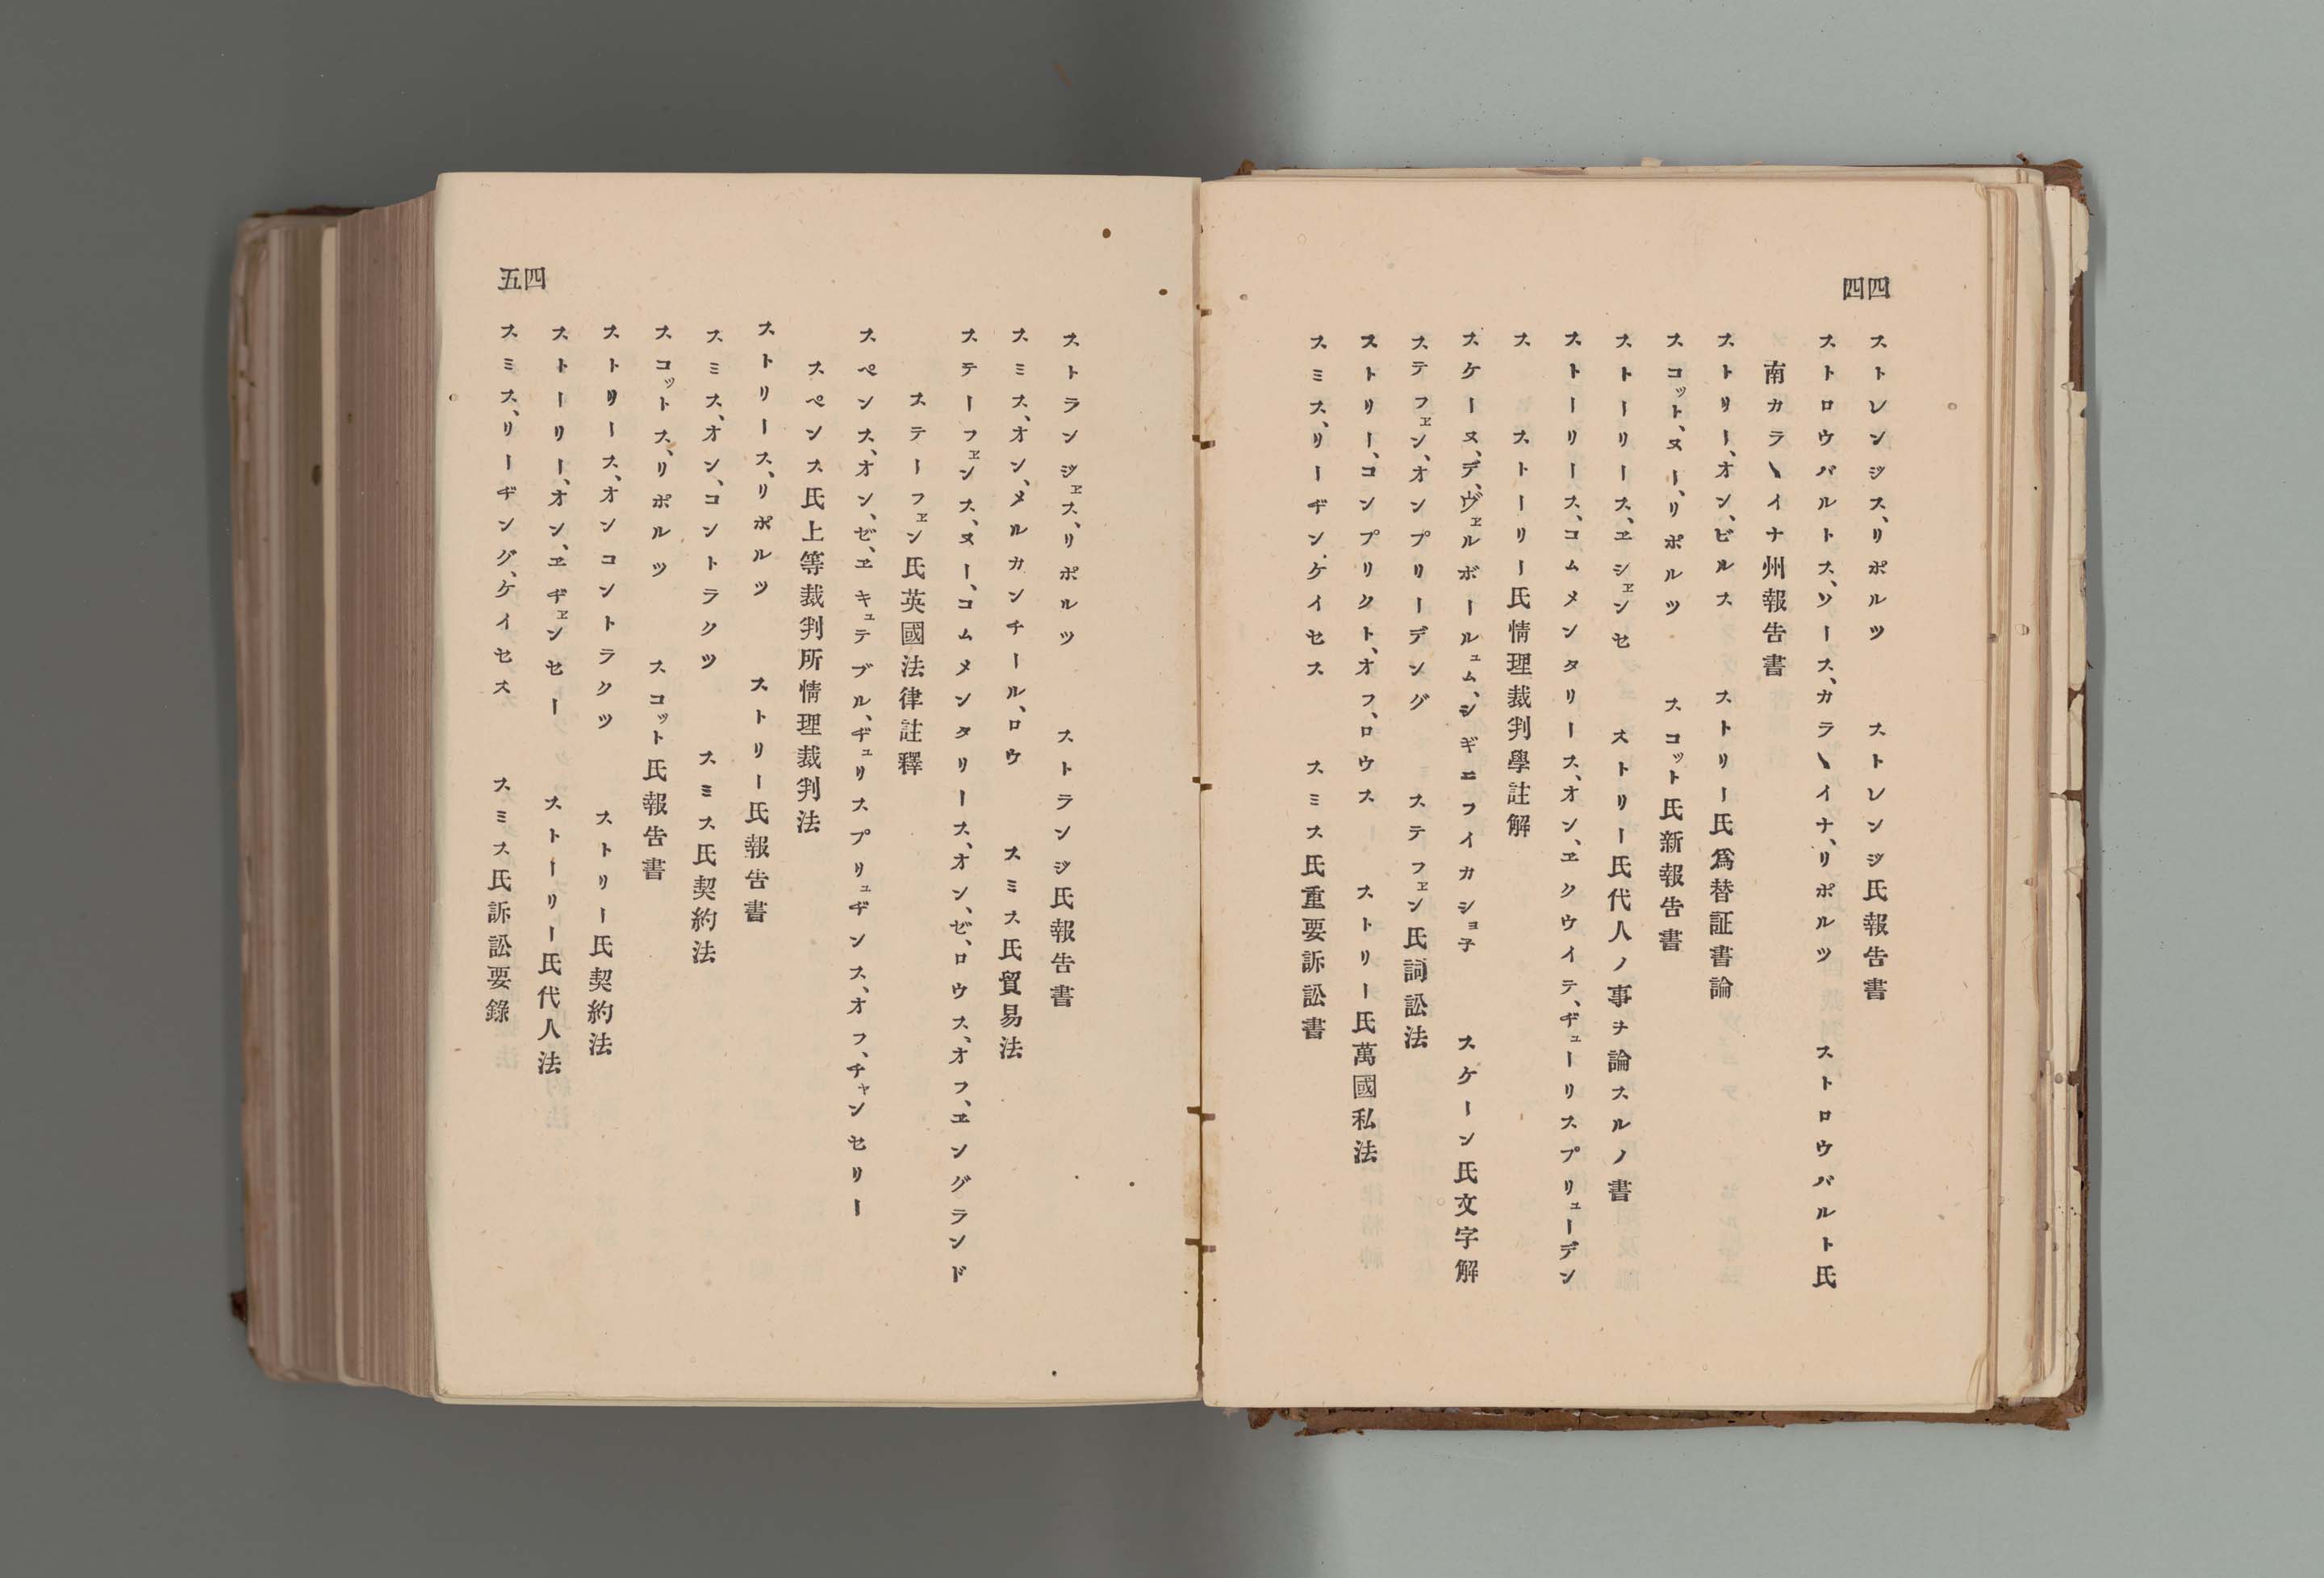 四四
ストレンジス、リポルツ　ストレンジ氏報告書
ストロウバルトス、ソース、カラヽイナ、リポルツ　ストロウバルト氏
南カラヽイナ州報告書
ストリー、オン、ビルス　ストリー氏爲替証書論
スコット、ヌー、リポルツ　スコット氏新報告書
ストーリース、ヱシヱンセ　ストリー氏代人ノ事ヲ論スルノ書
ストーリース、コムメンタリース、オン、ヱクウイテ、ヂューリスプリューデン
ス　ストーリー氏情理裁判學註解
スケーヌ、デ、ヴヱルボールュム、シギニフイカショ子　スケーン氏文字解
ステフヱン、オンプリーデング　ステフヱン氏詞訟法
ストリー、コンプリクト、オフ、ロウス　ストリー氏萬國私法
スミス、リーヂング、ケイセス　スミス氏重要訴訟書
ストランジヱス、リポルツ　ストランジ氏報告書
スミス、オン、メルカンチール、ロウ　スミス氏貿易法
ステーフヱンス、ヌー、コムメンタリース、オン、ゼ、ロウス、オフ、ヱングランド
ステーフヱン氏英國法律註釋
スペンス、オン、ゼ、ヱキュテブル、ヂュリスプリュヂンス、オフ、チャンセリー
スペンス氏上等裁判所情理裁判法
ストリース、リポルツ　ストリー氏報告書
スミス、オン、コントラクツ　スミス氏契約法
スコットス、リポルツ　スコット氏報告書
ストリース、オンコントラクツ　ストリー氏契約法
ストーリー、オン、ヱヂヱンセー　ストーリー氏代人法
スミス、リーヂング、ケイセス　スミス氏訴訟要錄
四五